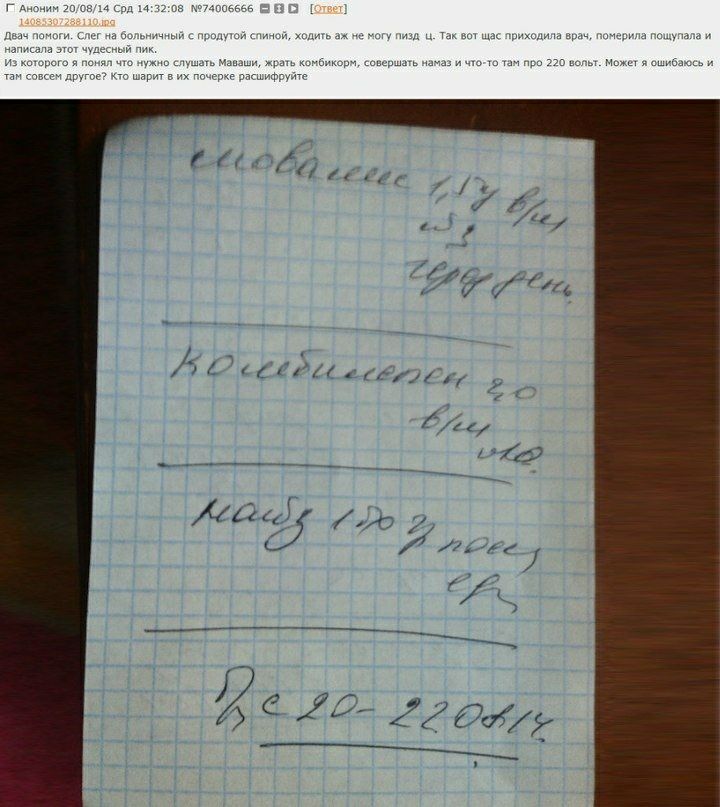 Аноним 20/08/14 Срд 14:32:08 №74006666 [Ответ]
14085307288110.jpg
Двач помоги. Слег на больничный с продутой спиной, ходить аж не могу пизд ц. Так вот щас приходила врач, померила пощупала и
написала этот чудесный пик.
Из которого я понял что нужно слушать Маваши, жрать комбикорм, совершать намаз и что-то там про 220 вольт. Может я ошибаюсь и
там совсем другое? Кто шарит в их почерке расшифруйте
мовалис 1,5 в/м
№3
через день.
Комбилипен 2,0
в/м
№10.
найз
с 20-22